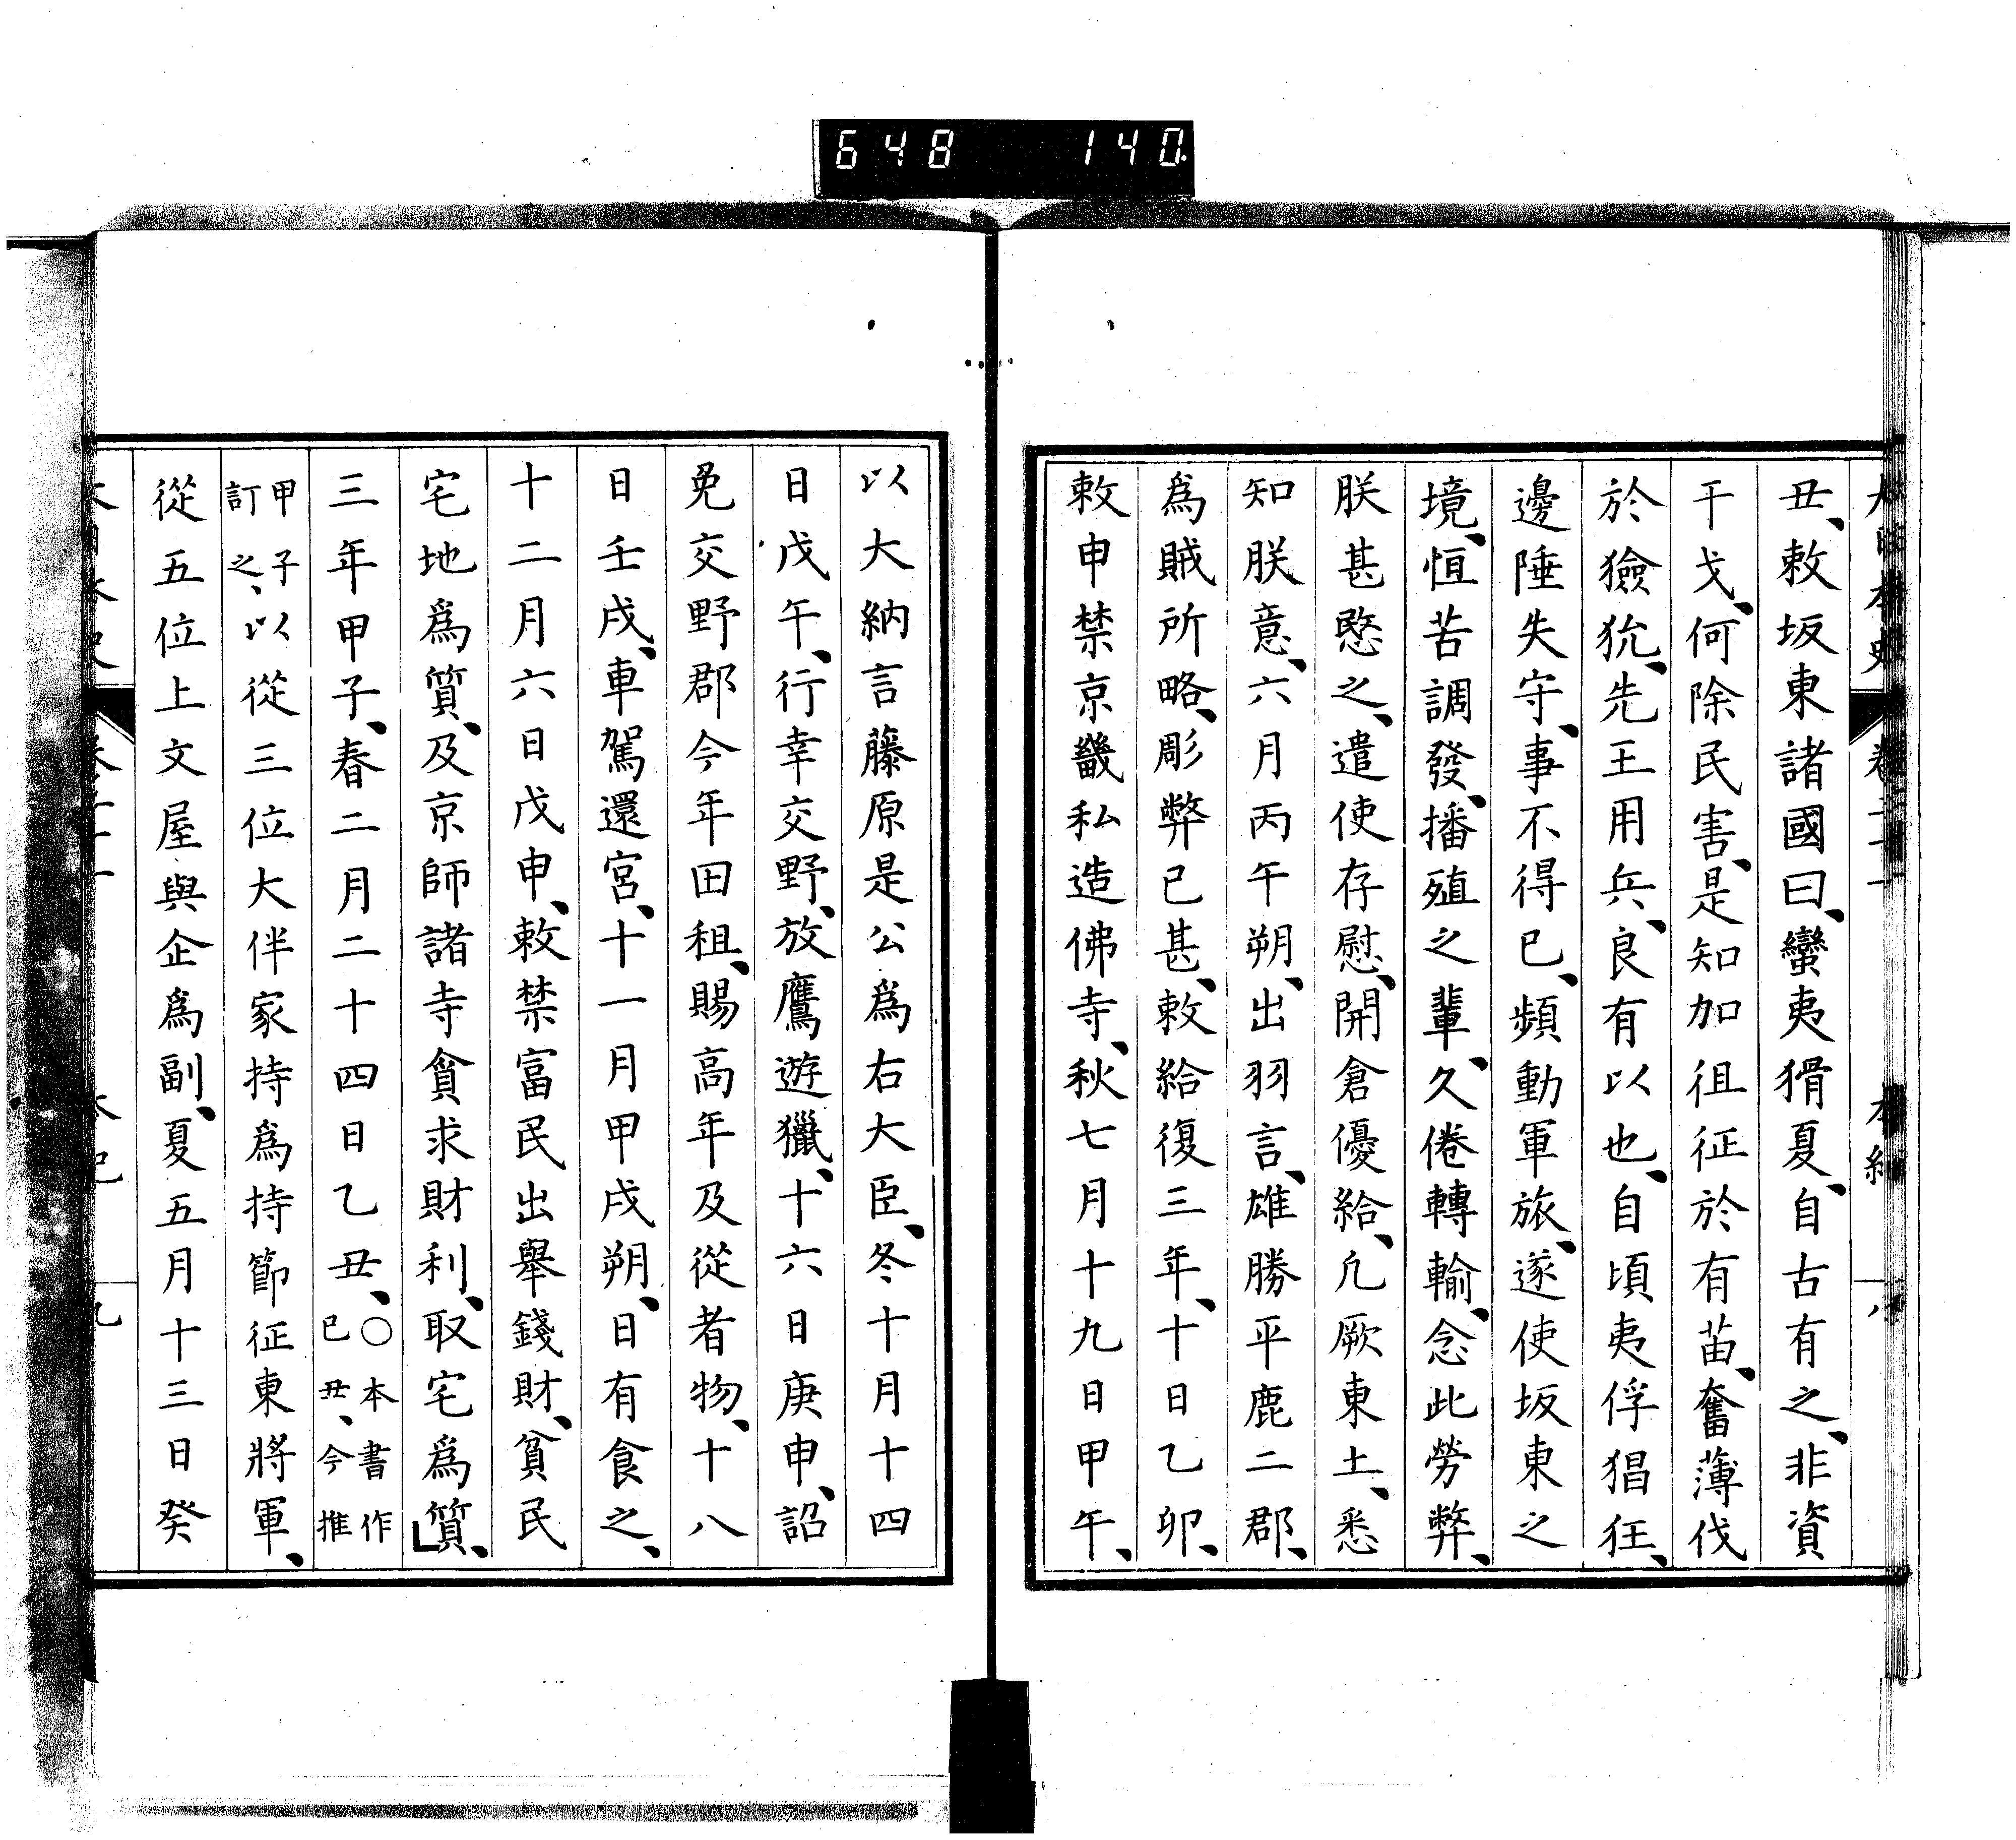 648 140
大日本史 卷二十一 本紀 八
丑、敕坂東諸國曰、蠻夷猾夏、自古有之、非資
干戈、何除民害、是知加徂征於有苗、奮薄伐
於獫狁、先王用兵、良有以也、自頃夷俘猖狂、
邊陲失守、事不得已、頻動軍旅、遂使坂東之
境、恒苦調發、播殖之輩、久倦轉輸、念此勞弊、
朕甚愍之、遣使存慰、開倉優給、凡厥東土、悉
知朕意、六月丙午朔、出羽言、雄勝平鹿二郡、
爲賊所略、彫弊已甚、敕給復三年、十日乙卯、
敕申禁京畿私造佛寺、秋七月十九日甲午、
以大納言藤原是公爲右大臣、冬十月十四
日戊午、行幸交野、放鷹遊獵、十六日庚申、詔
免交野郡今年田租、賜高年及從者物、十八
日壬戌、車駕還宮、十一月甲戌朔、日有食之、
十二月六日戊申、敕禁富民出舉錢財、貧民
宅地爲質、及京師諸寺貪求財利、取宅爲質、
三年甲子、春二月二十四日乙丑、○本書作己丑、今推
甲子訂之、以從三位大伴家持爲持節征東將軍、
從五位上文屋與企爲副、夏五月十三日癸